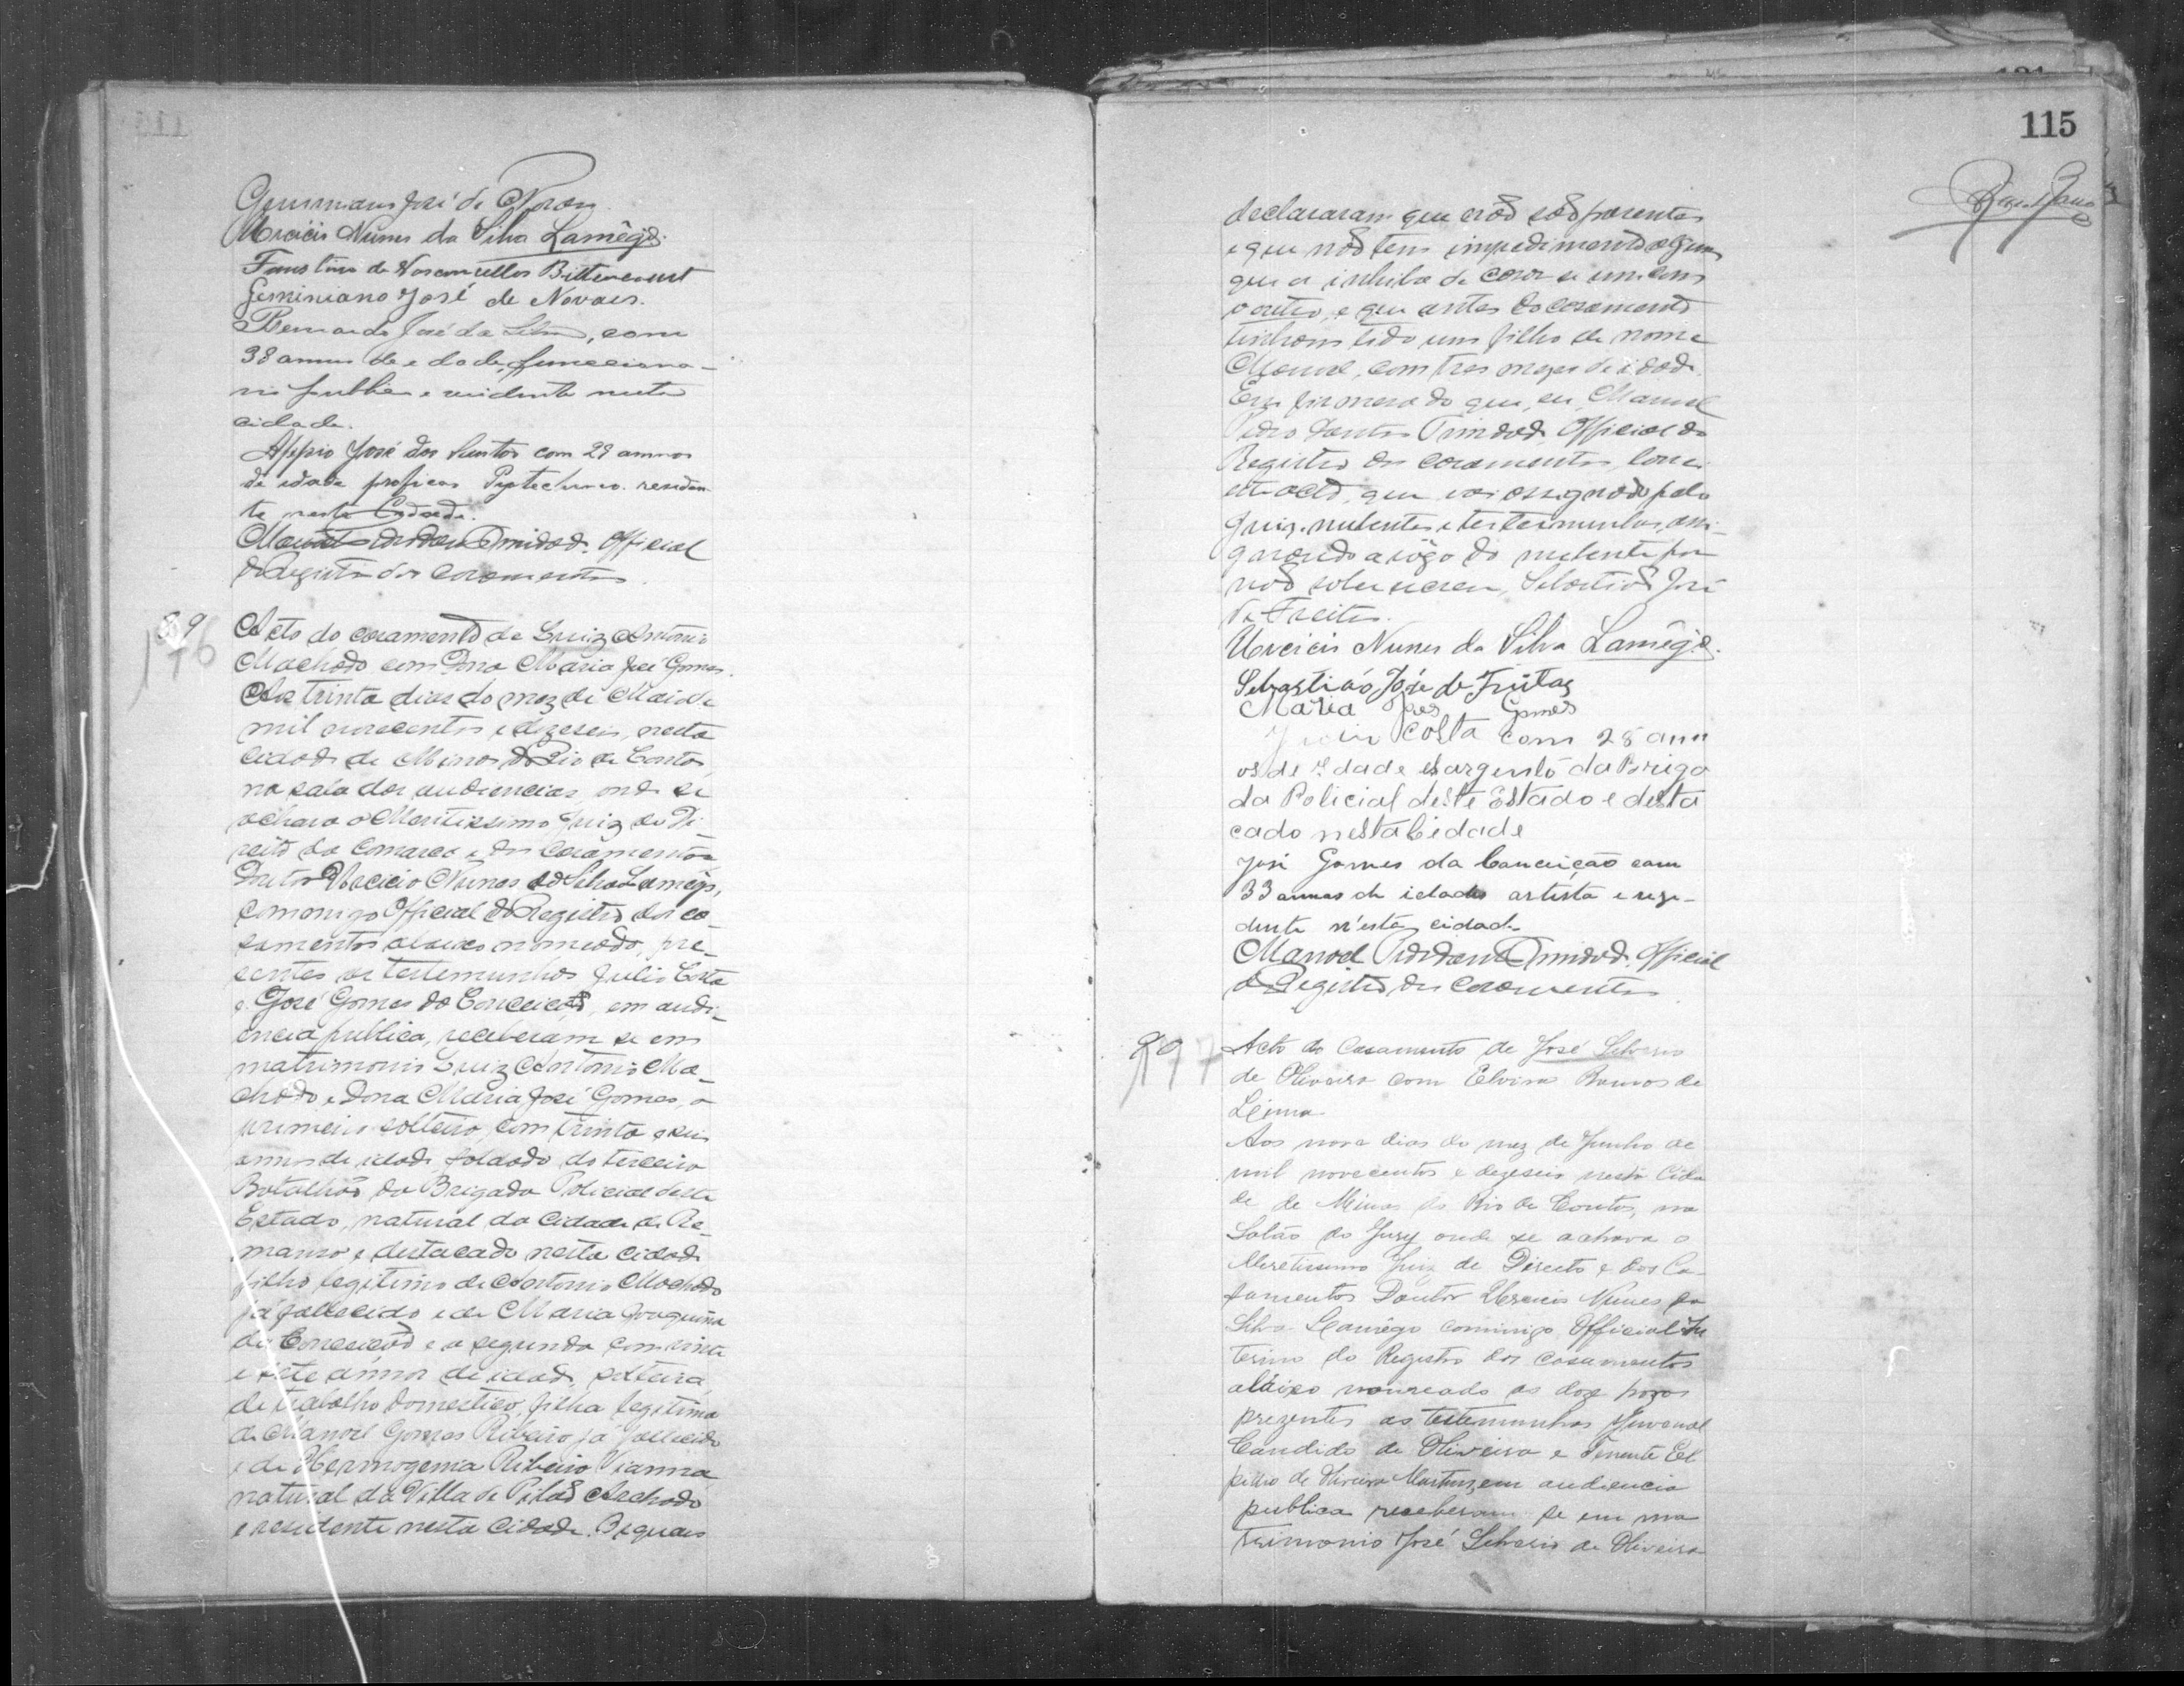 Germiniano José de Novaes
Urcicio Nunes da Silva Lamêgo.
Faustino de Vasconcellos Bittencourt
Geminiano José de Novaes.
Bernardo José da Silva, com
38 annos de edade, funcciona-
rio publico e residente nesta
cidade.
Appio José dos Santos com 29 annos
de idade profissão Pyrotechnico residen
te nesta Cidade.
Manoel Trindade Official
do Registro dos casamentos.
89
176
Acto do casamento de Luiz Antonio
Machado com Dona Maria José Gomes.
Aos trinta dias do mez de Maio de
mil novecentos e dezeseis, nesta
cidade de Minas do Rio de Contas,
na sala das audiencias, onde se
achava o Meritissimo Juiz de Di-
reito da Comarca e dos Casamentos
Doutor Urcicio Nunes da Silva Lamego,
commigo Official do Registro dos ca-
samentos abaixo nomeado, pre-
sentes as testemunhas Julio Costa
e José Gomes da Conceição, em audi-
encia publica, receberam se em
matrimonio Luiz Antonio Ma-
chado e Dona Maria José Gomes, o
primeiro solteiro, com trinta e seis
annos de idade, soldado do terceiro
Batalhão da Brigada Policial deste
Estado, natural da Cidade de Re-
manso e destacado nesta cidade
filho legitimo de Antonio Machado
já fallecido e de Maria Joaquina
da Conceição e a segunda com vinte
e sete annos de idade, solteira,
de trabalho domestico, filha legitima
de Manoel Gomes Ribeiro já fallecido
e de Hermogenia Ribeiro Vianna
natural da Villa de Pilão Archado
e residente nesta cidade. Os quaes
115
declararam que não são parentes
e que não tem impedimento algum
que os inhiba de casar se um com
o outro, e que antes do casamento
tinham tido um filho de nome
Manoel, com tres mezes de idade.
Em firmeza do que, eu, Manoel
Pedro Dantas Trindade, Official do
Registro dos casamentos, lavrei
este acto, que vai assignado pelo
Juiz, nubentes e testemunhas, assi-
gnando a rôgo do nubente por
não saber escrever, Sebastião José
de Freitas.
Urcicio Nunes da Silva Lamêgo.
Sebastião José de Freitas
Maria José Gomes
Julio Costa com 28 ann
os de idade sargento da Briga
da Policial deste Estado e desta
cado nesta Cidade
José Gomes da Conceição com
33 annos de idade artista e rezi-
dente n'esta cidade
Manoel Pedro Dantas Trindade. Official
do Registro dos Casamentos.
90
177
Acto do Casamento de José Silverio
de Oliveira com Elvira Ramos de
Leima
Aos nove dias do mez de Junho de
mil novecentos e dezeseis nesta Cida
de de Minas do Rio de Contas, no
Salão do Jury onde se achava o
Meretissimo Juiz de Direito e dos Ca-
samentos Doutor Urcicio Nunes da
Silva Lamêgo commigo, Official In
terino do Registro dos casamentos
abaixo nomeado as doze horas
prezentes as testemunhas Juvenal
Candido de Oliveira e Tenente El
pidio de Oliveira Martins, em audiencia
publica receberam se em ma
trimonio José Silverio de Oliveira